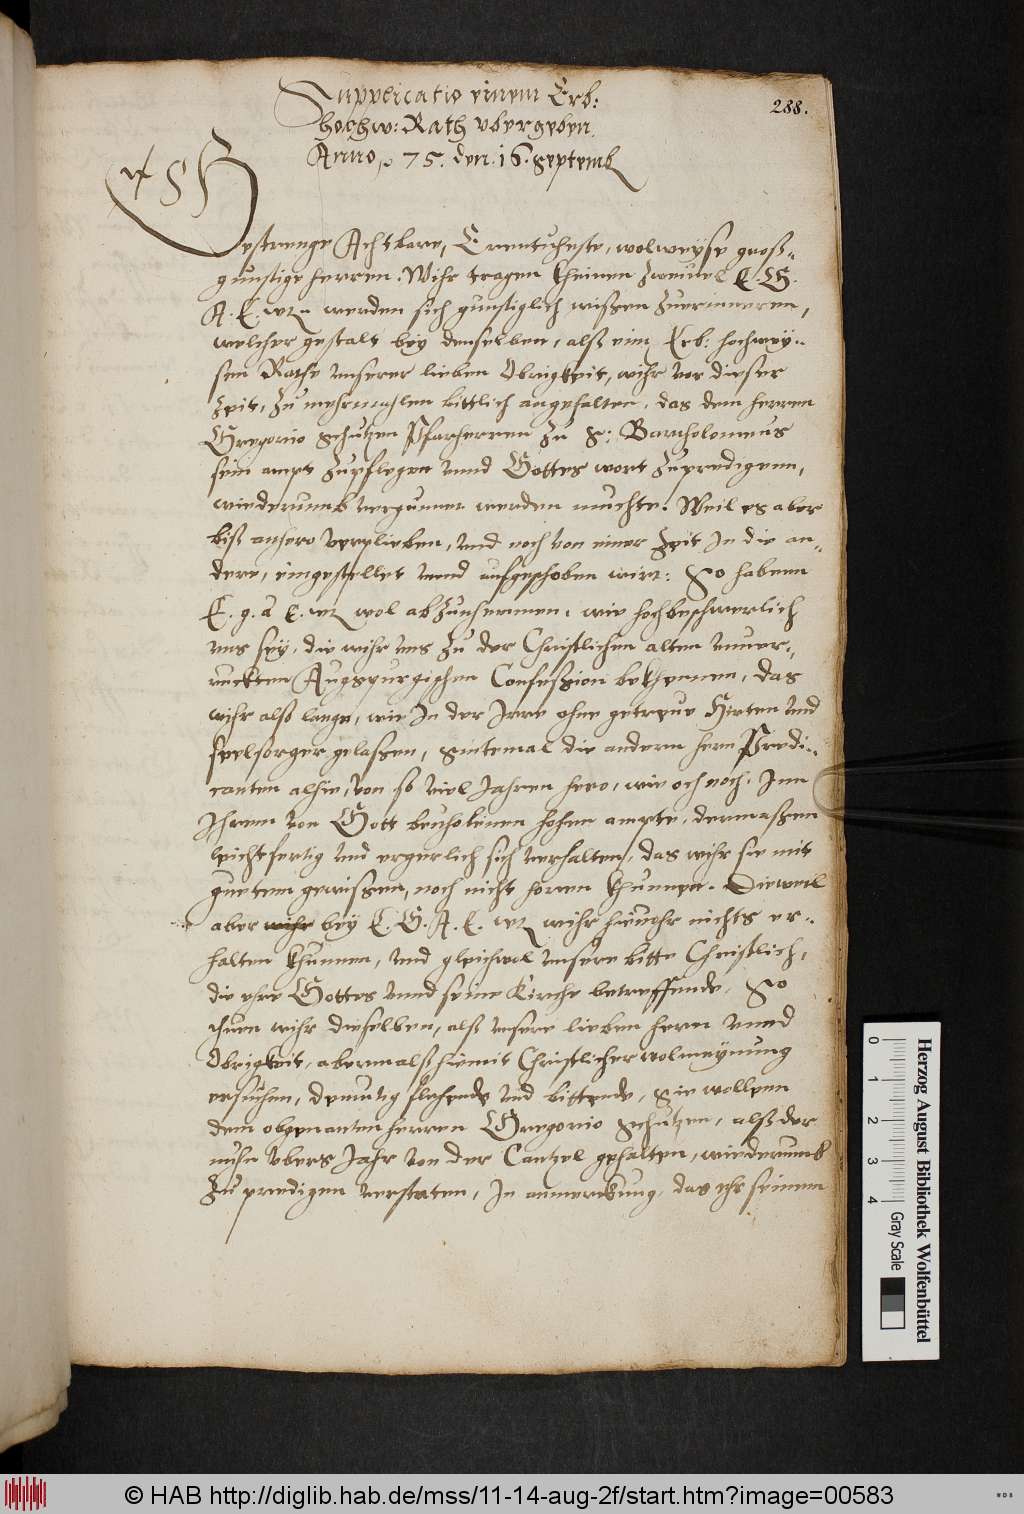 Supplicatio einem Erb:
hochw: Rath vbergeben.
Anno 75. den. 16. Septemb
288.
Gestrenge Achtbare, Erentueheste, wolweyse gross„
gunstige herren. Wihr tragen kheinen zweiuel E. G.
A. E. w. werden sich gunstiglich wissen zuerinneren,
welcher gestalt bey denselben, alss einn Erb: hochwey„
sen Rathe vnserer lieben Obrigkeit, wihr vor dieser
Zeit, zu mehrmahlen bittlich angehalten, das dem herren
Gregorio Schutzen Pfarherren zu S: Bartholomeus
sein ampt zupflegen vnnd Gottes wort zupredigenn,
wiederumb vergunnet werden muchte. Weil es aber
biss anhero verplieben, vnd noch von einer Zeit In die an„
dere, eingestellet vnnd aufgeschoben wirt: So habenn
E. g. a E. w wol abzunhemen, wie hochbeschwerlich
vns sey, die wihr vns zu der Christlichen alten vnuer„
ruckten Augspurgischen Confession bekhennen, das
wihr alss lange, wie In der Irre ohne getreue Hirten vnd
seelsorger gelassen, Sintemal die andern hern Predi„
canten alhie, von so viel Jahren hero, wie och noch, Inn
Ihrem von Gott beuholenen hohen ampte, dermassen
leichtfertig vnd ergerlich sich verhalten, das wihr sie mit
guetem gewissen, noch nicht hören khunnen. Dieweil
aber wihr bey E. G. A. E. w wihr hieuohr nichts er„
halten khunnen, vnd gleichwol vnsere bitte Christlich,
die ehre Gottes vnnd seine Kirche betreffende, So
thuen wihr dieselben, alss vnsere lieben hern vnnd
Obrigkeit, abermalss hiemit Christlicher wolmeynung
ersuchen, demutig flehende vnd bittende, Sie wollenn
dem obgenanten herren Gregorio Schutzen, alss der
nuhn vbers Jahr von der Cantzel gehalten, wiederumb
zu predigen verstaten, In anmerckung, das ehr seinem
Herzog August Bibliothek Wolfenbüttel
0 1 2 3 4
Gray Scale
© HAB http://diglib.hab.de/mss/11-14-aug-2f/start.htm?image=00583